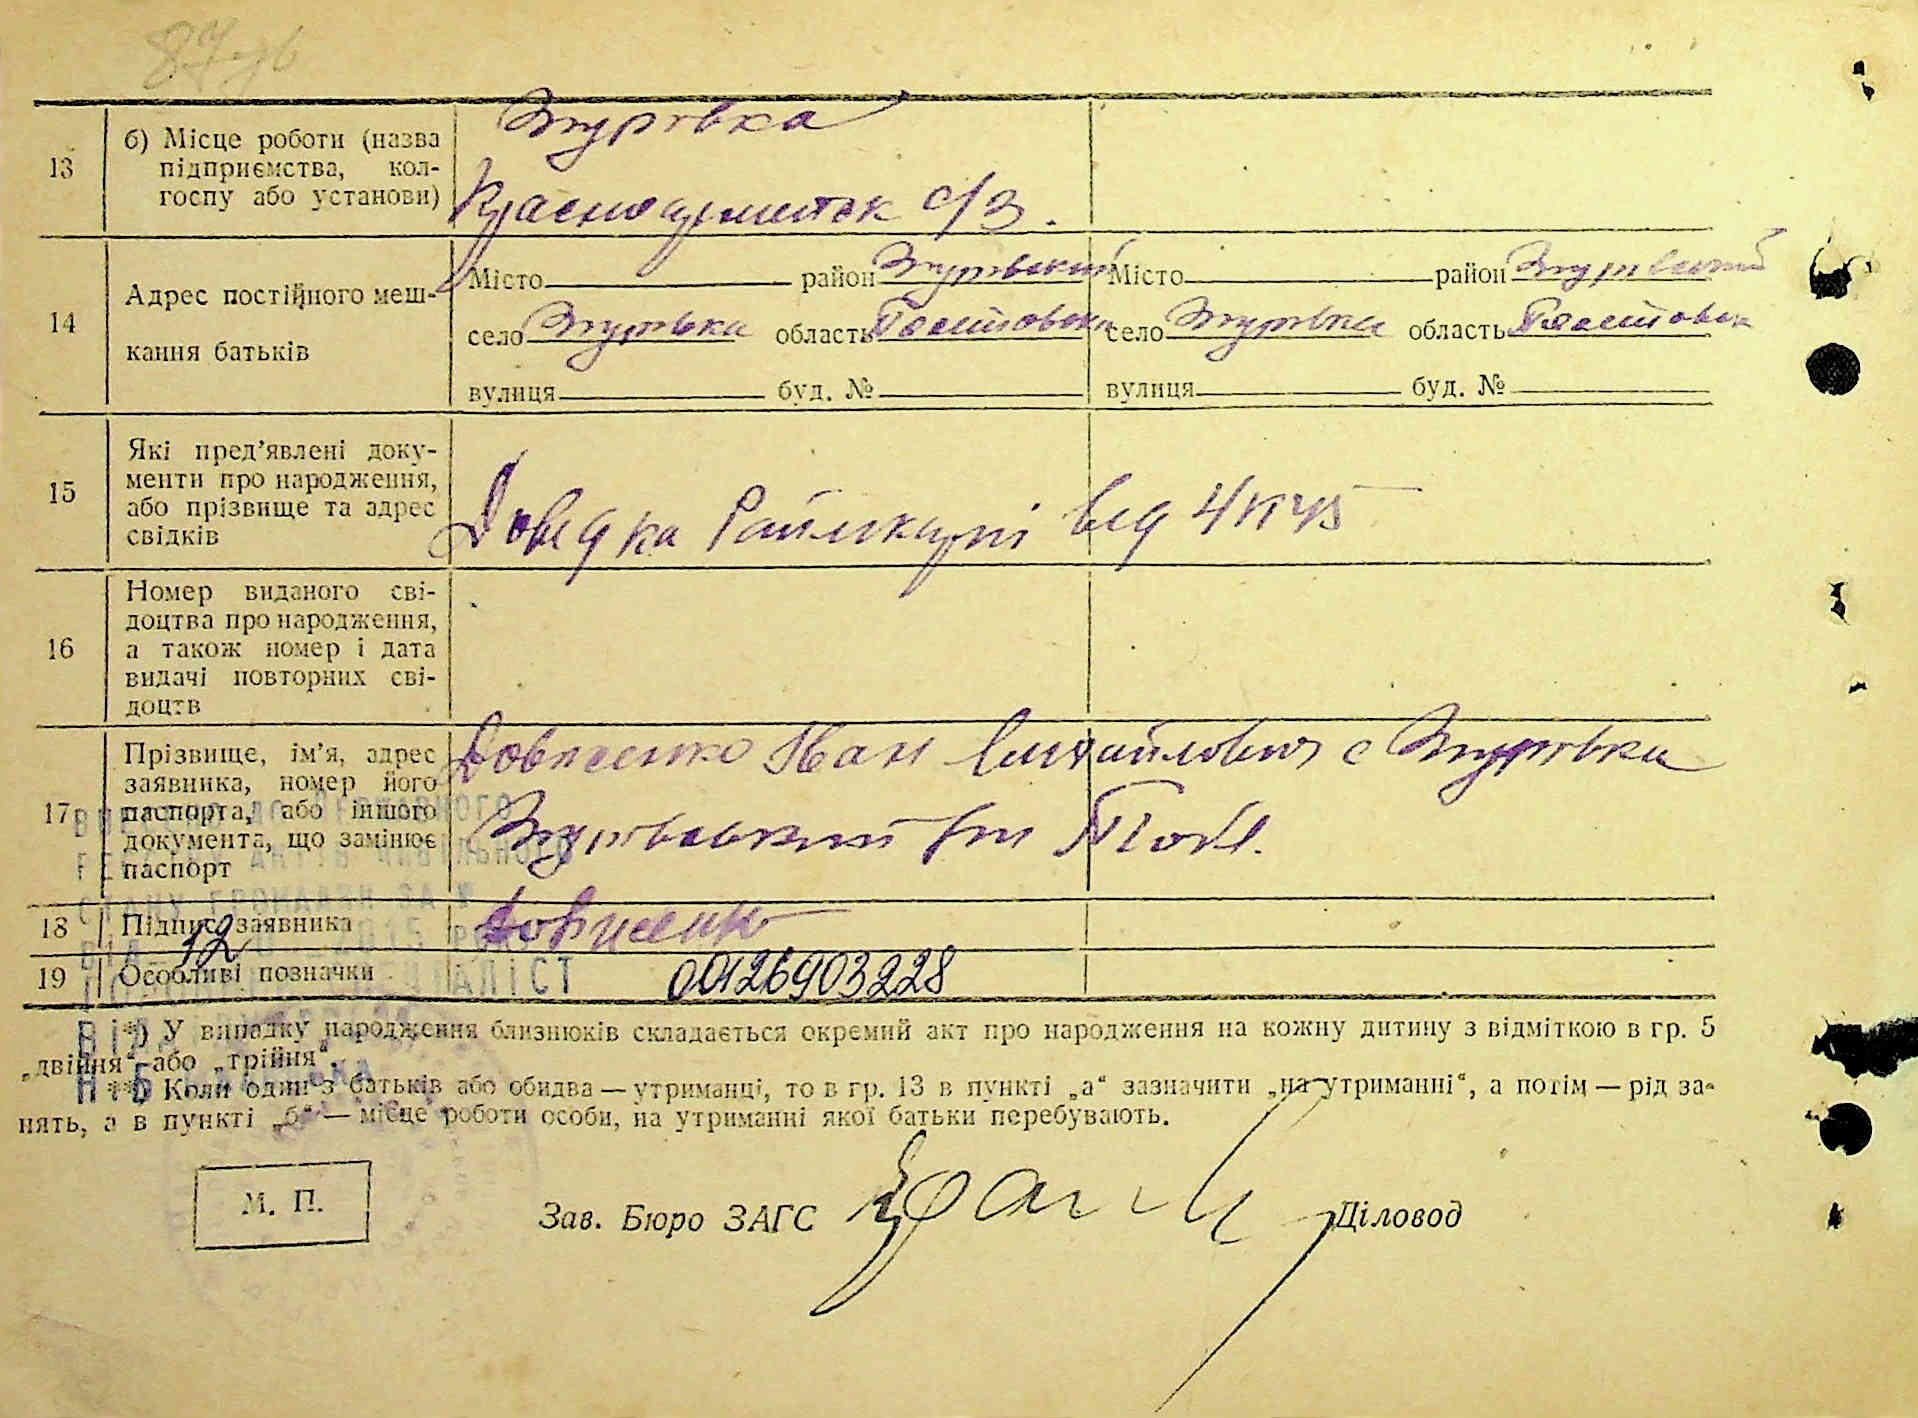 13
б) Місце роботи (назва
підприємства, кол-
госпу або установи)
Згурівка
Красноармеєць с/з.
14
Адрес постійного меш-
кання батьків
Місто район Згурівський
село Згурівка область Полтавська
вулиця буд. №
Місто район Згурівський
село Згурівка область Полтавськ
вулиця буд. №
15
Які пред’явлені доку-
менти про народження,
або прізвище та адрес
свідків
Довідка Райлікарні від
16
Номер виданого сві-
доцтва про народження,
а також номер і дата
видачі повторних сві-
доцтв
17
Прізвище, ім’я, адрес
заявника, номер його
паспорта, або іншого
документа, що замінює
паспорт
Іван Михайлович с Згурівка
Згурівський
18
Підпис заявника
19
Особливі позначки
00126903228
*) У випадку народження близнюків складається окремий акт про народження на кожну дитину з відміткою в гр. 5
„двійня“ або „трійня“.
**) Коли один з батьків або обидва — утриманці, то в гр. 13 в пункті „а“ зазначити „на утриманні“, а потім — рід за-
нять, а в пункті „б“ — місце роботи особи, на утриманні якої батьки перебувають.
М. П.
Зав. Бюро ЗАГС
Діловод